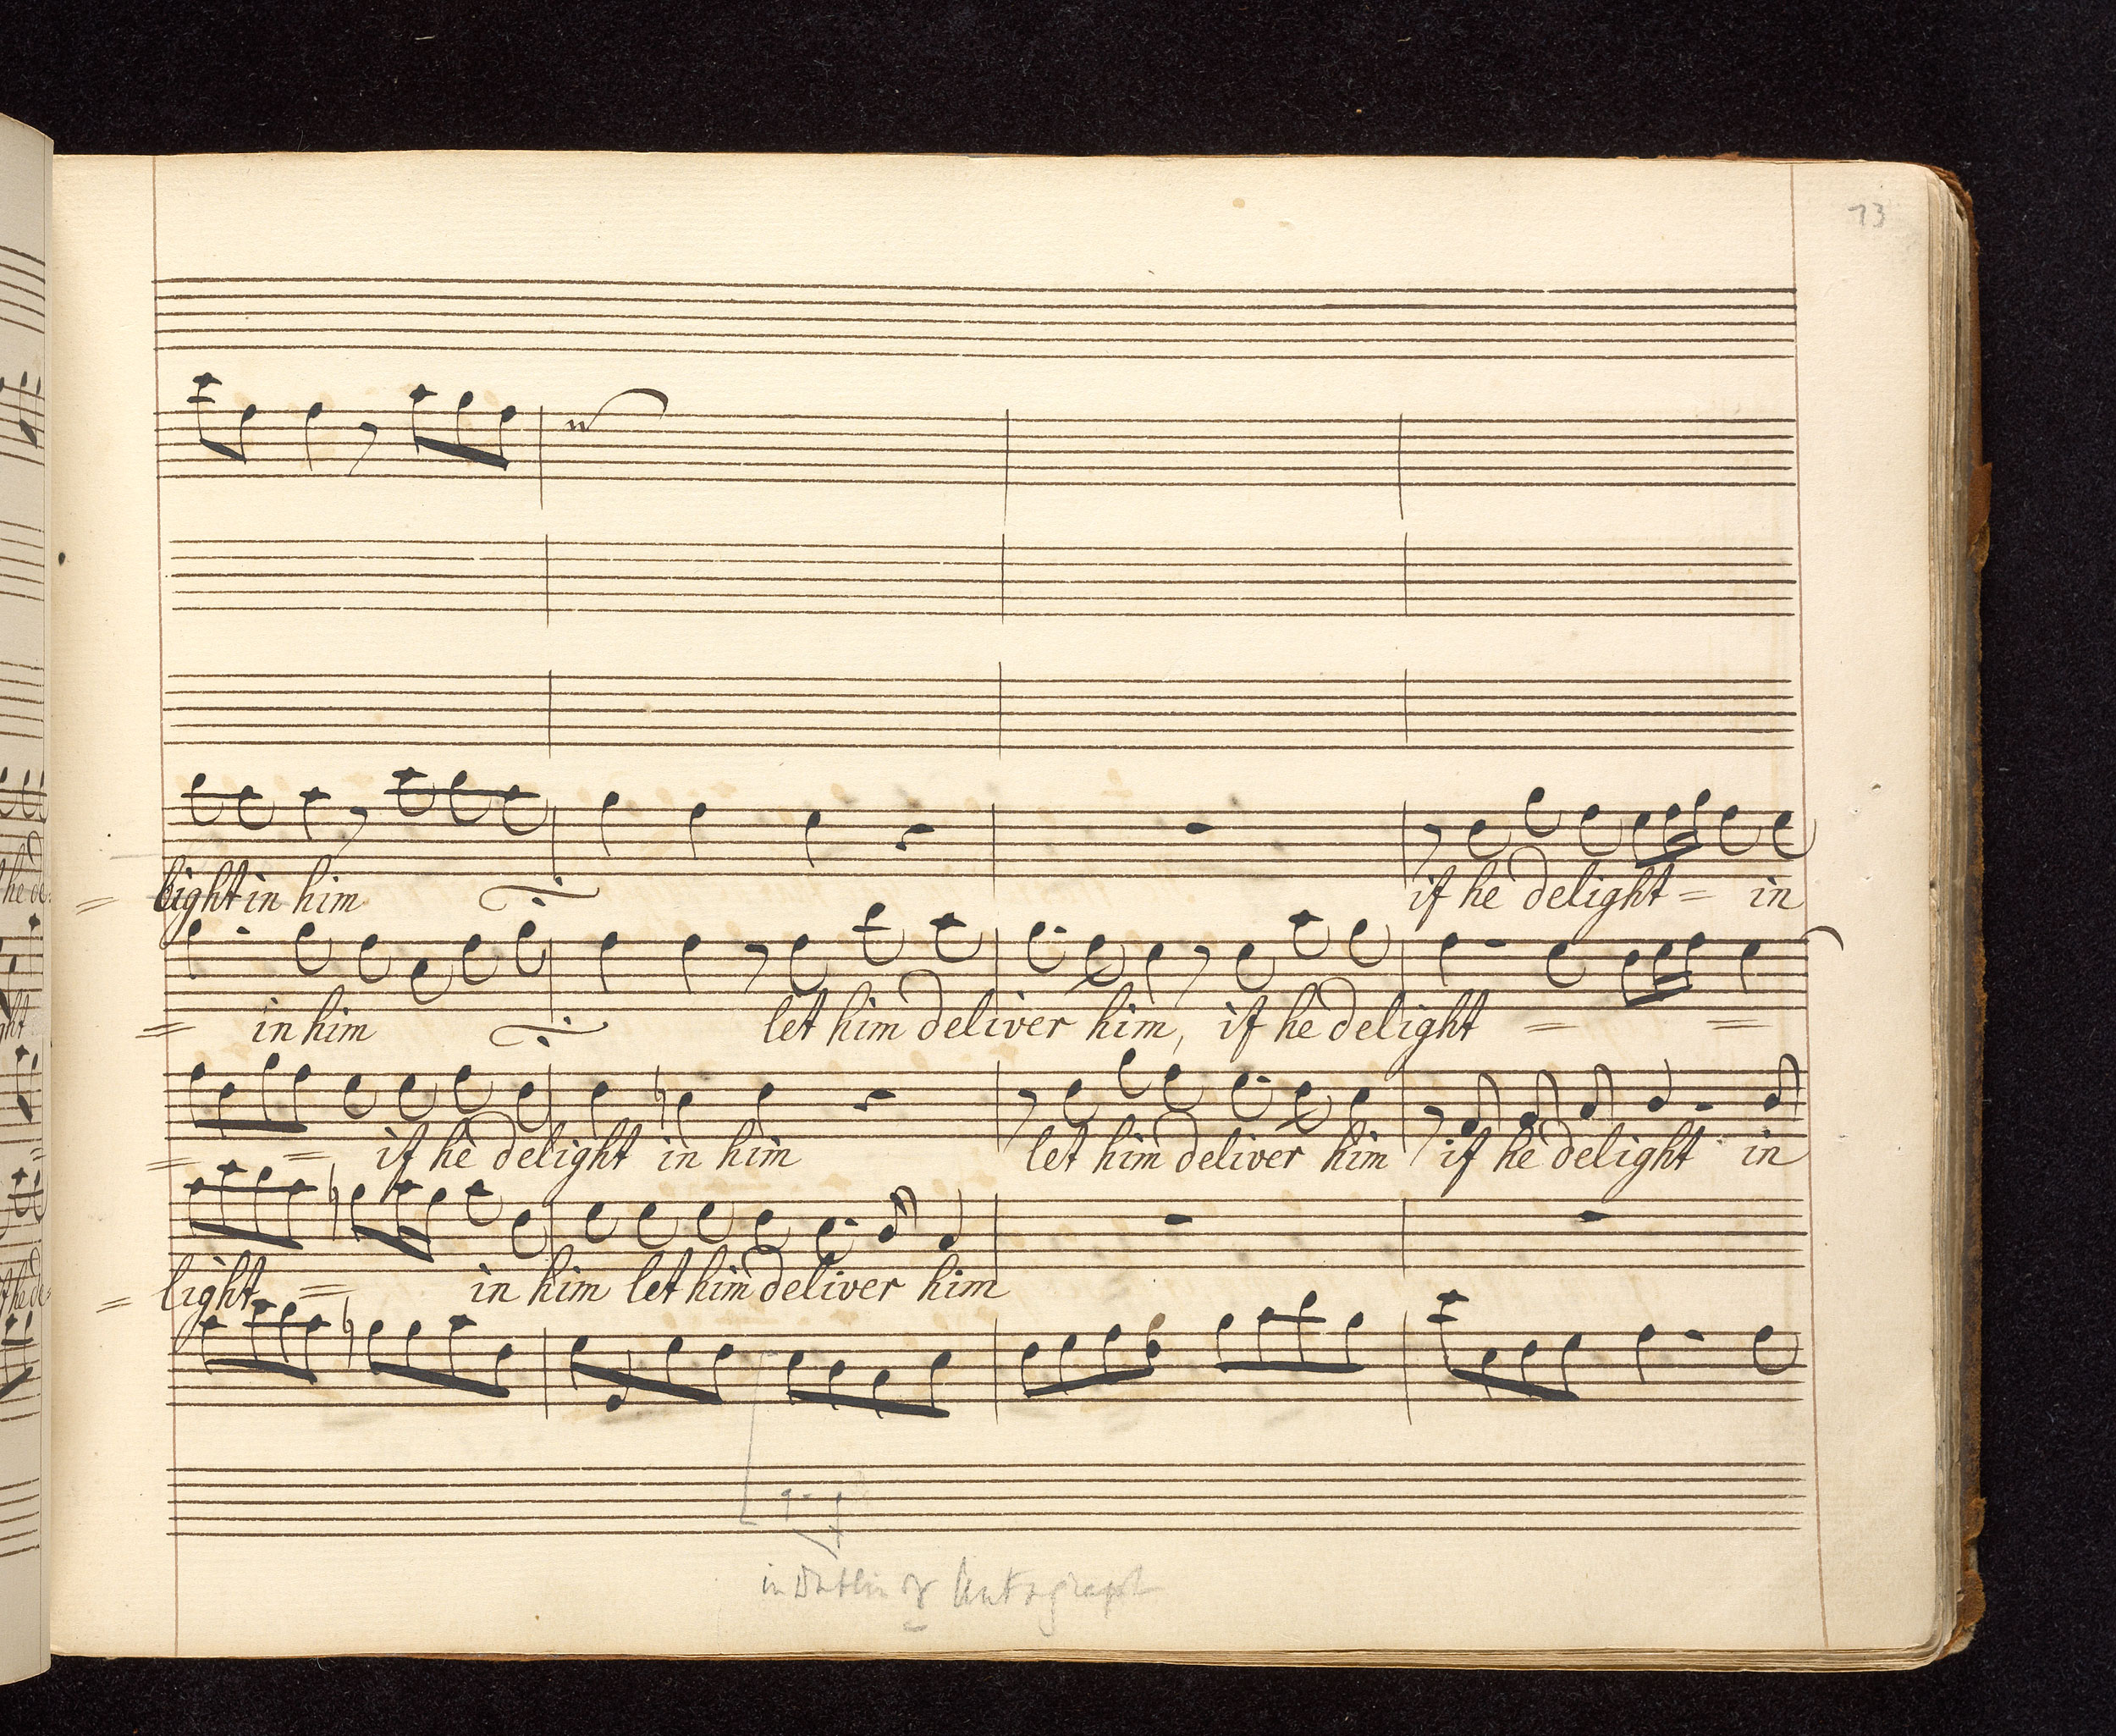 73
light in him if he delight = in
= in him let him deliver him, if he delight = =
= = if he delight in him let him deliver him if he delight in
= light = in him let him deliver him
in Dublin & Autograph